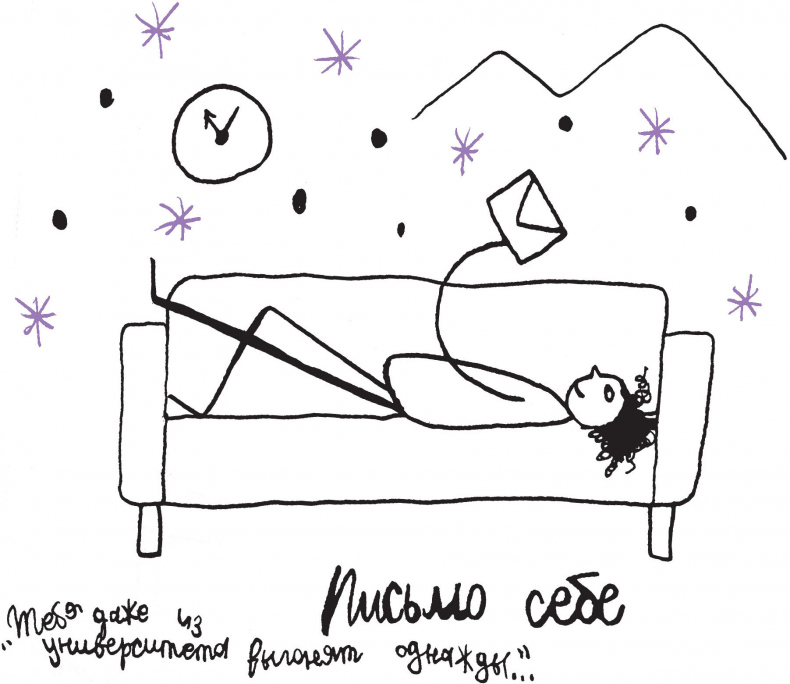 Письмо себе
Тебя даже из
„университета выгонят однажды..."...